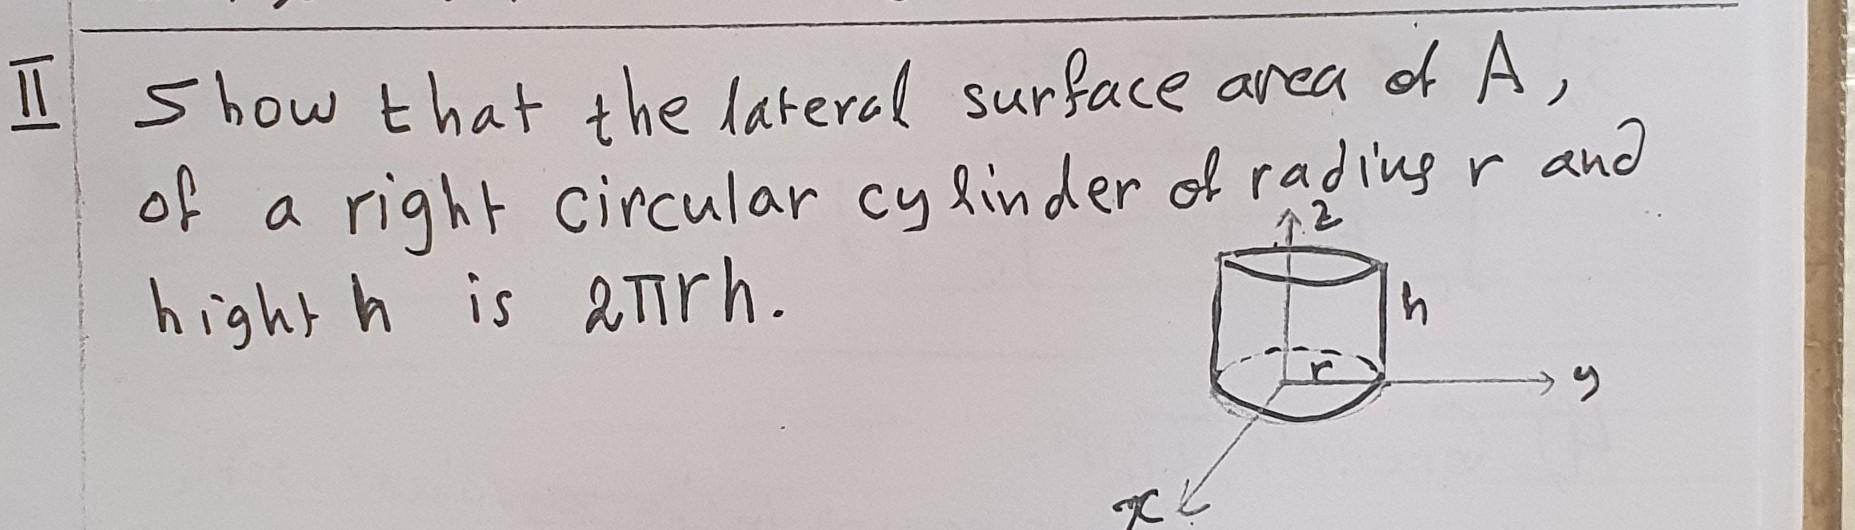 II Show that the lateral surface area of A,
of a right circular cylinder of radius r and
hight h is 2πrh.
z
h
r
y
x